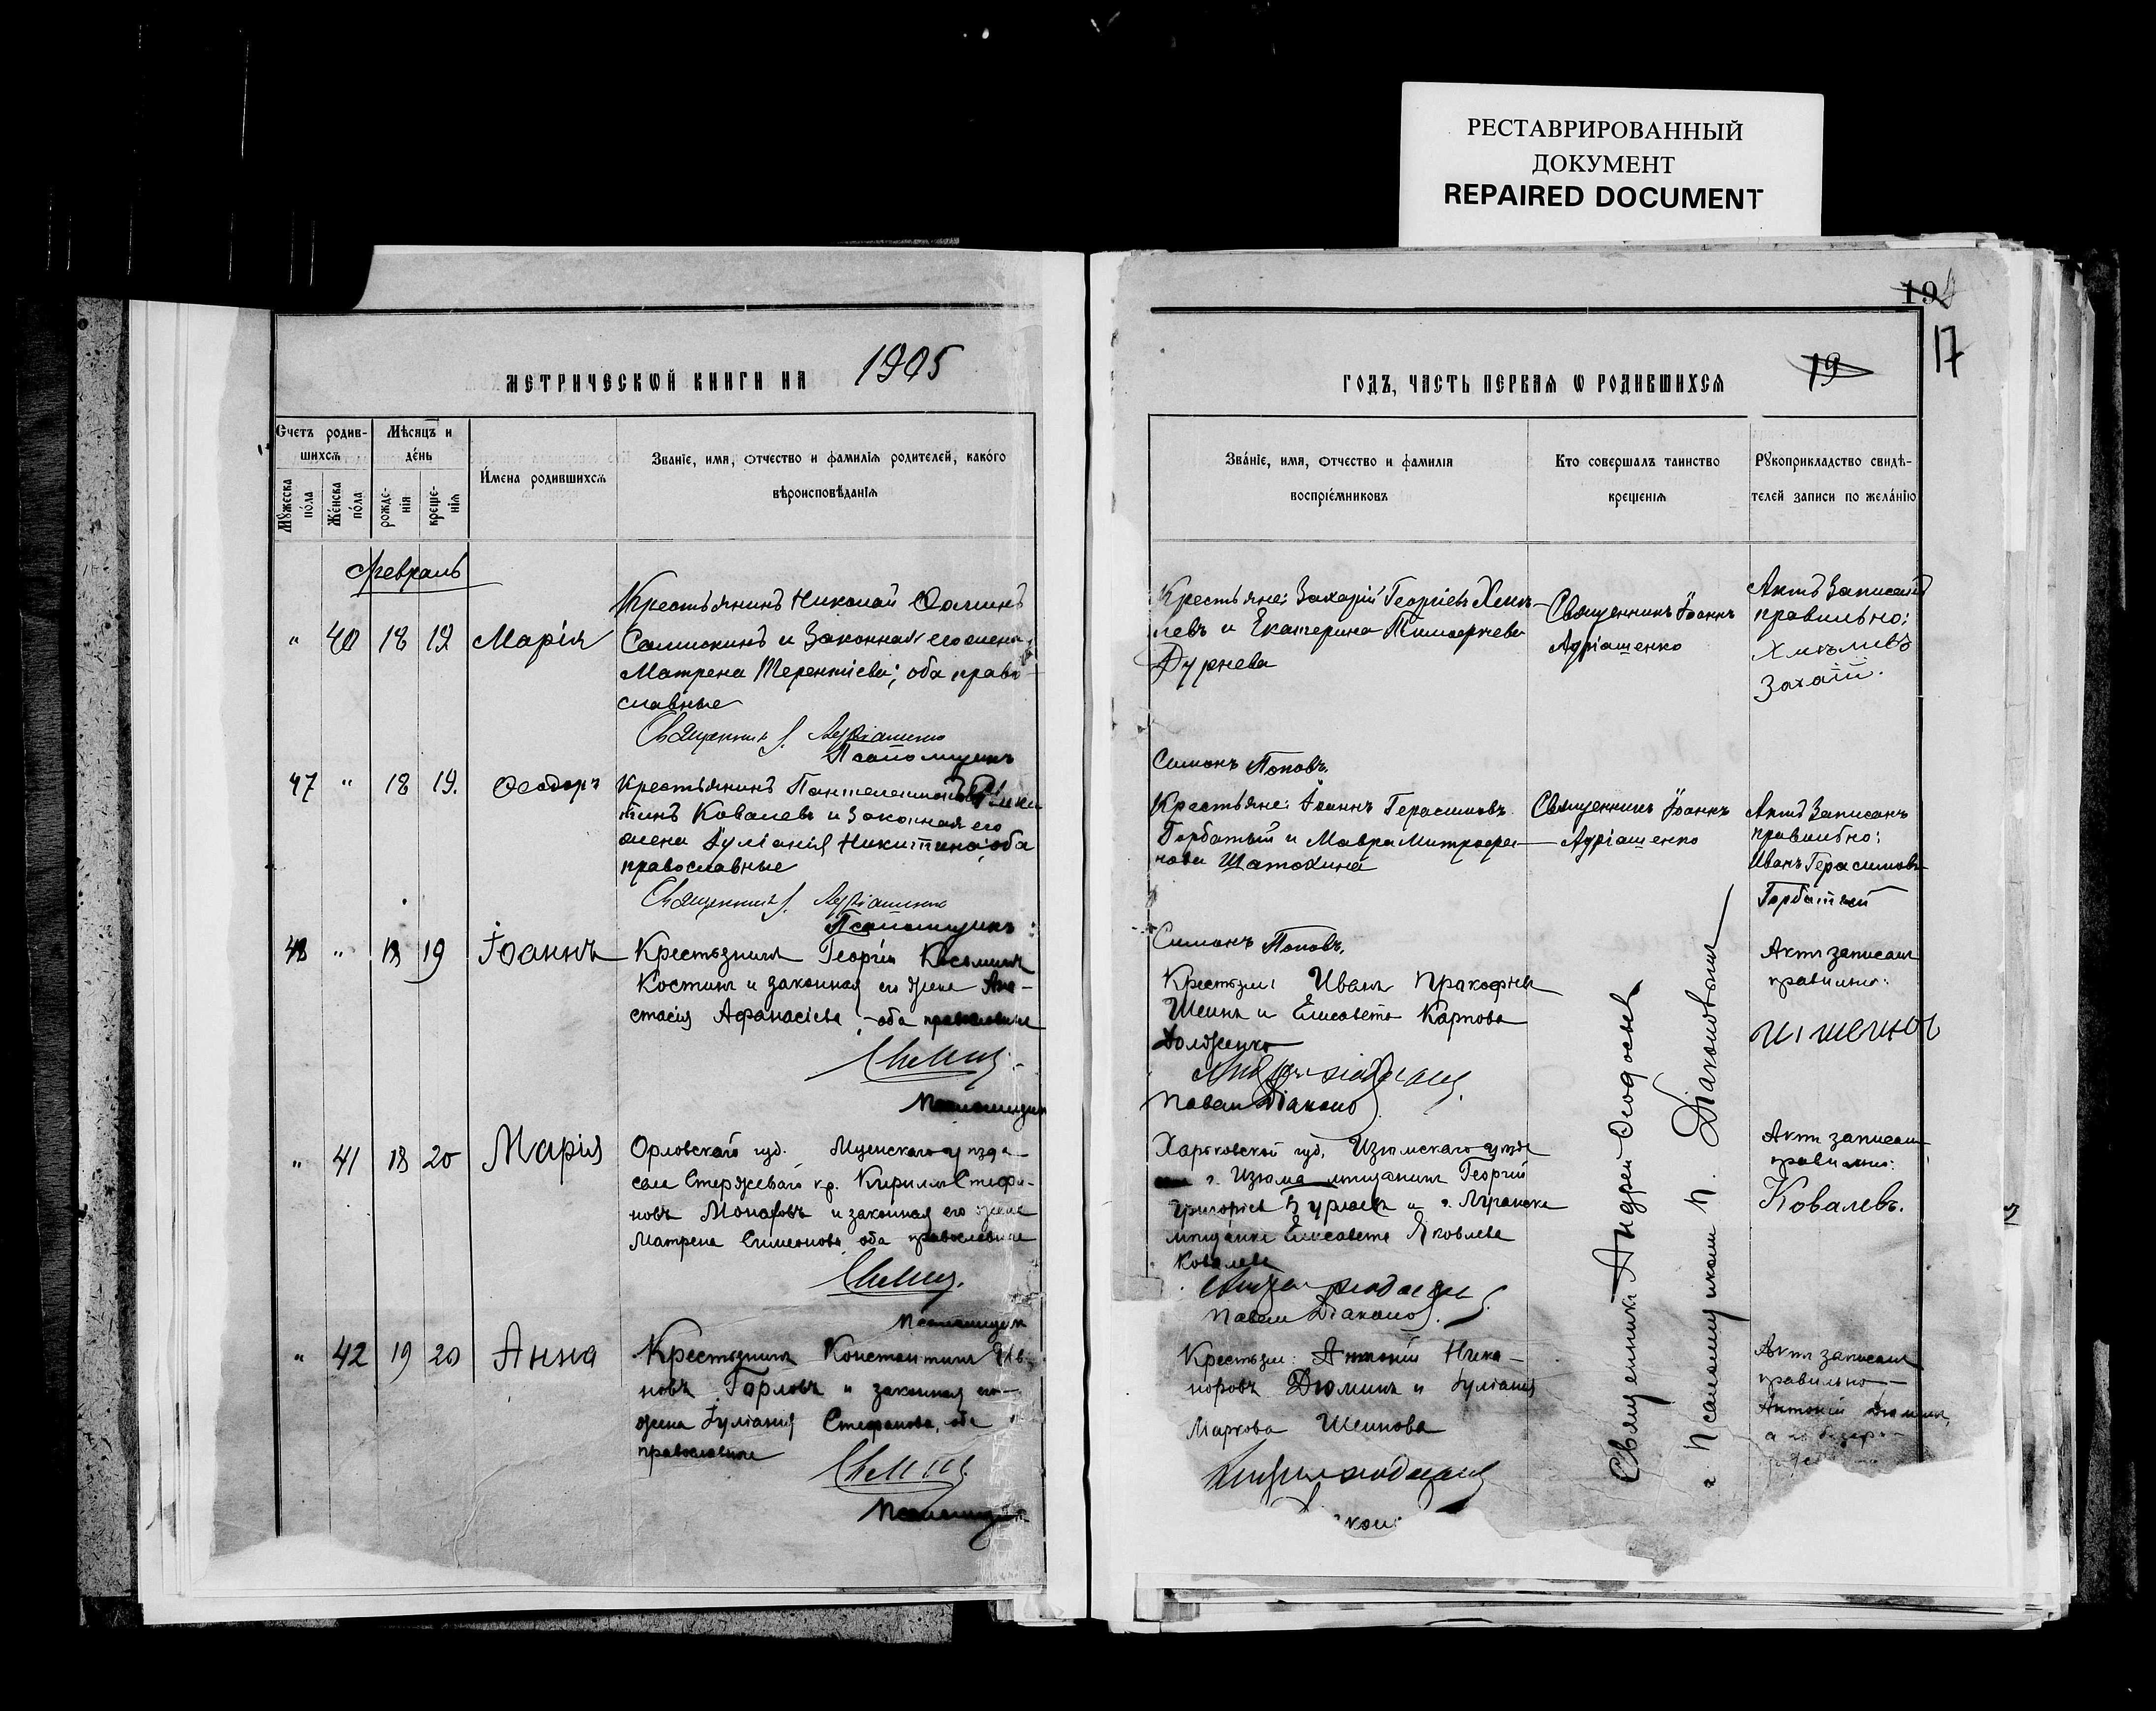 РЕСТАВРИРОВАННЫЙ
ДОКУМЕНТ
REPAIRED DOCUMENT
17
19
МЕТРИЧЕСКОЙ КНИГИ НА 1905
ГОДЪ, ЧАСТЬ ПЕРВАЯ Ѡ РОДИВШИХСЯ
Счетъ родив-
шихся
Мужеска пола
Женска пола
Мѣсяцъ и
день
рожде-
нія
креще-
нія
Имена родившихся
Званіе, имя, отчество и фамилія родителей, какого
вѣроисповѣданія
Званіе, имя, отчество и фамилія
воспріемниковъ
Кто совершалъ таинство
крещенія
Рукоприкладство свидѣ-
телей записи по желанію
Февраль
" 40 18 19 Марія
Крестьянинъ Николай
и законная его жена
Матрена Терентіева; оба право-
славные
Священникъ І. Адріашенко
Псаломщикъ
Крестьяне: Захарій Георгіевъ
левъ и Екатерина
Дурнева
Симонъ Поповъ.
Священникъ Іоаннъ
Адріашенко
Актъ записанъ
правильно:
47 " 18 19. Ѳеодоръ
Крестьянинъ
Ковалевъ и законная его
жена Іуліанія Никитина; оба
православные
Священникъ І. Адріашенко
Псаломщикъ
Крестьяне: Іоаннъ Герасимовъ
Горбатый и Мавра Митрофа-
нова Шатохина
Симонъ Поповъ.
Священникъ Іоаннъ
Адріашенко
Актъ записанъ
правильно:
Иванъ Герасимовъ
Горбатый
48 " 18 19 Іоаннъ
Крестьянинъ Георгій Косьминъ
Костинъ и законная его жена Ана-
стасія Афанасіева, оба православные
Свящ.
Псаломщикъ
Крестьяне: Иванъ Прокофьевъ
Шеинъ и Елисавета Карпова
Долженко
Павелъ Діаконов
Актъ записанъ
правильно:
" 41 18 20 Марія
Орловской губ. Мценскаго уѣзда
села кр. Кириллъ Стефа-
новъ Монаховъ и законная его жена
Матрена Симеонова, оба православные
Свящ.
Псаломщикъ
Харьковской губ. Изюмскаго уѣзда
г. Изюма мѣщанинъ Георгій
Григорьевъ и г. Луганска
мѣщанка Елисавета Яковлева
Ковалева
Андрей Ѳеодосьевъ
Павелъ Діаконов
Актъ записанъ
правильно:
Ковалевъ.
" 42 19 20 Анна
Крестьянинъ Константинъ
новъ Горловъ и законная его
жена Іуліанія Стефанова, оба
православные
Свящ.
Псаломщикъ
Крестьяне: Антоній Ника-
норовъ Дюминъ и Іуліанія
Маркова Шеинова
Священникъ Андрей Ѳеодосьевъ
съ Псаломщикомъ П. Діаконовымъ
Актъ записанъ
правильно
Антоній Дюминъ